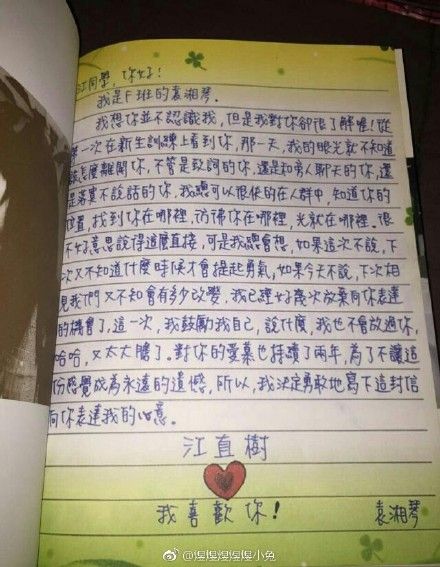 江同學，你好！
我是F班的袁湘琴。
我想你並不認識我，但是我對你卻很了解喔！從
第一次在新生訓練上看到你，那一天，我的眼光就不知道
該怎麼離開你，不管是致詞的你，還是和旁人聊天的你，還
是落寞不說話的你，我總可以很快的在人群中，知道你的
位置，找到你在哪裡，彷彿你在哪裡，光就在哪裡。很
不好意思說得這麼直接，可是我總會想，如果這次不說，下
次又不知道什麼時候才會提起勇氣，如果今天不說，下次相
見我們又不知會有多少改變，我已讓好幾次放棄向你表達
的機會了，這一次，我鼓勵我自己，說什麼，我也不會放過你，
哈哈，又太大膽了。對你的愛慕也持續了兩年，為了不讓這
份感覺成為永遠的遺憾，所以，我決定勇敢地寫下這封信
向你表達我的心意。
江直樹
我喜歡你！ 袁湘琴
@浧浧浧浧浧小兔